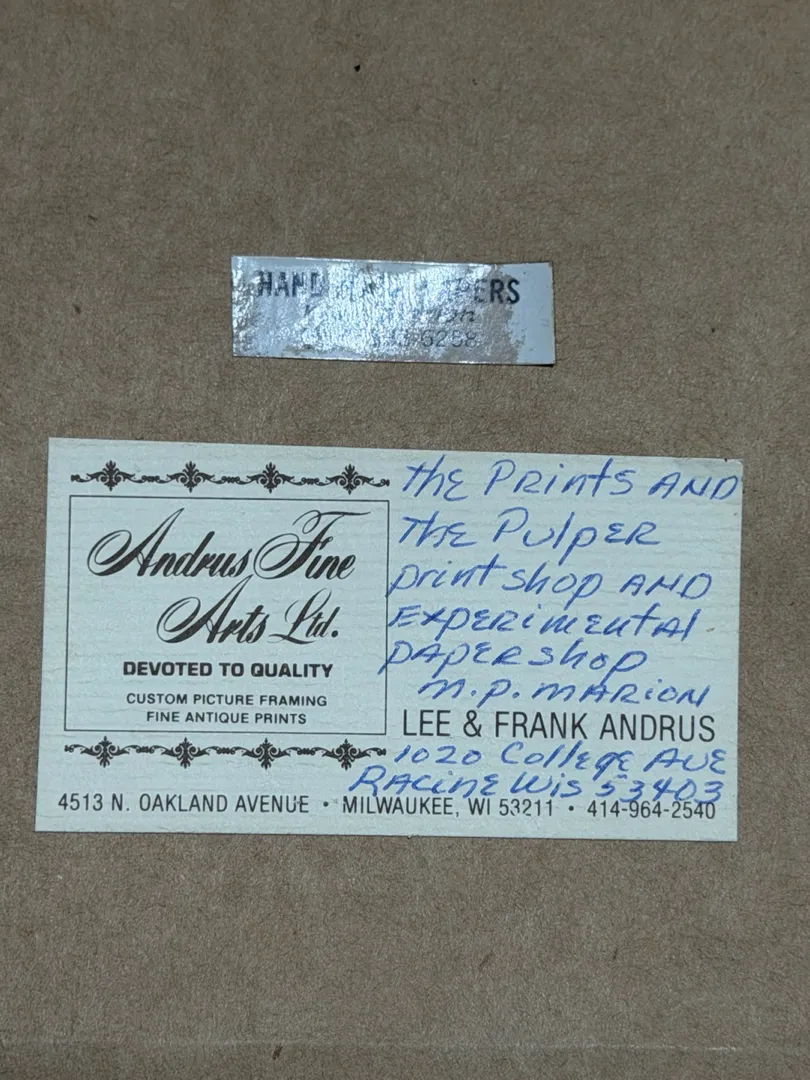 HAND PERS
6298
Andrus Fine
Arts Ltd.
DEVOTED TO QUALITY
CUSTOM PICTURE FRAMING
FINE ANTIQUE PRINTS
the Prints AND
the Pulper
print shop AND
Experimental
paper shop
M.P. Marion
LEE & FRANK ANDRUS
1020 College Ave
Racine Wis 53403
4513 N. OAKLAND AVENUE • MILWAUKEE, WI 53211 • 414-964-2540